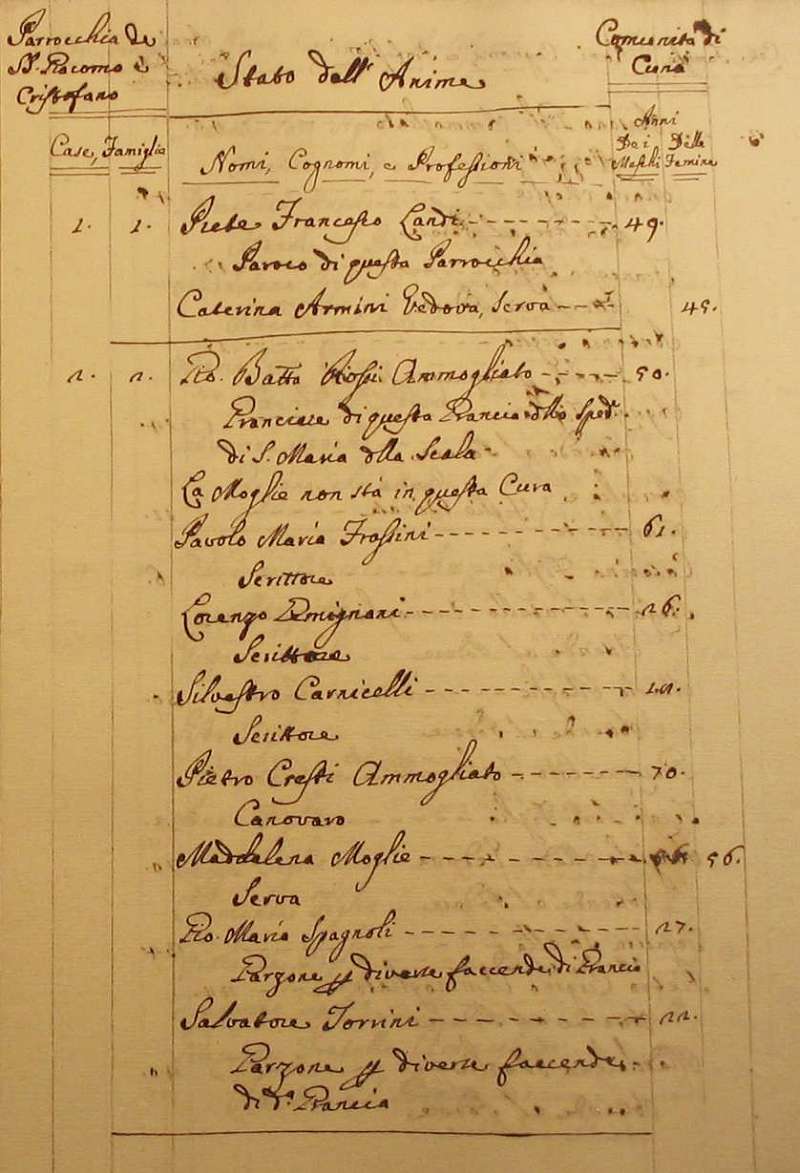 Parrocchia de
SS. Giacomo e
Cristofano
Stato dell' Anime
Comunità di
Cuna
Case, Famiglie
Nomi, Cognomi, e Professioni
Anni
Dei Maschi
Delle Femine
1. 1. Prete Francesco Landi 49.
Paroco di questa Parrocchia
Caterina Armini Vedova, Serva 45.
2. 2. Gio. Batta Rossi Ammogliato 50.
Granciere di questa Grancia dllo Sped.
di S. Maria dlla Scala
La Moglie non stà in questa Cura
Pavolo Maria Frossini 61.
Scrittore
Lorenzo 26.
Scrittore
Silvestro Carnicelli
Scrittore
Pietro Cresti Ammogliato 70.
Canovaro
Maddalena Moglie 56.
Serva
Gio. Maria Spagnoli 27.
Garzone p diverse faccende di Grancia
Salvatore Torrini 22.
Garzone p diverse faccende
di da. Grancia